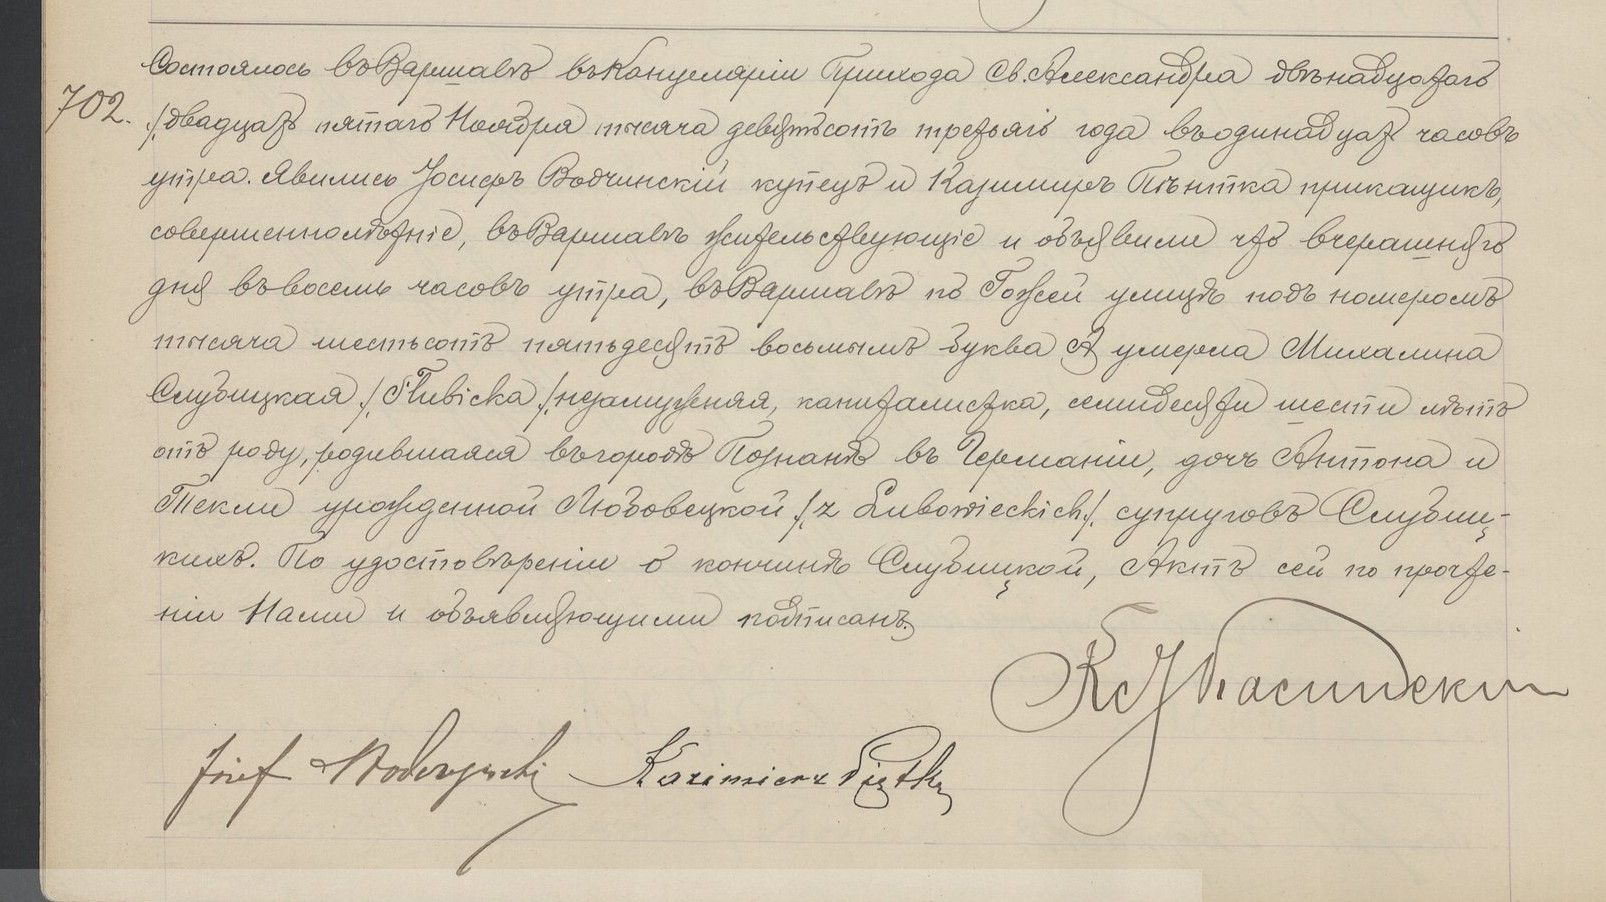 Состоялось въ Варшавѣ въ Канцеляріи Прихода Св. Александра двѣнадцатаго
702. /двадцать пятаго Ноября тысяча девятьсотъ третьяго года въ одинадцать часовъ
утра. Явились Іосифъ Водчинскій купецъ и Казимиръ Піентка прикащикъ,
совершеннолѣтніе, въ Варшавѣ жительствующіе и объявили что вчерашняго
дня въ восемь часовъ утра, въ Варшавѣ по Гожей улицѣ подъ номеромъ
тысяча шестьсотъ пятьдесятъ восьмымъ буква А умерла Михалина
Слубицкая /Słubicka/ незамужняя, капиталистка, семидесяти шести лѣтъ
отъ роду, родившаяся въ городѣ Познанѣ въ Германіи, дочь Антона и
Текли урожденной Любовецкой /z Lubowieckich/ супруговъ Слубиц-
кихъ. По удостовѣреніи о кончинѣ Слубицкой, Актъ сей по прочте-
ніи Нами и объявляющими подписанъ.
Józef Kazimierz Piętka